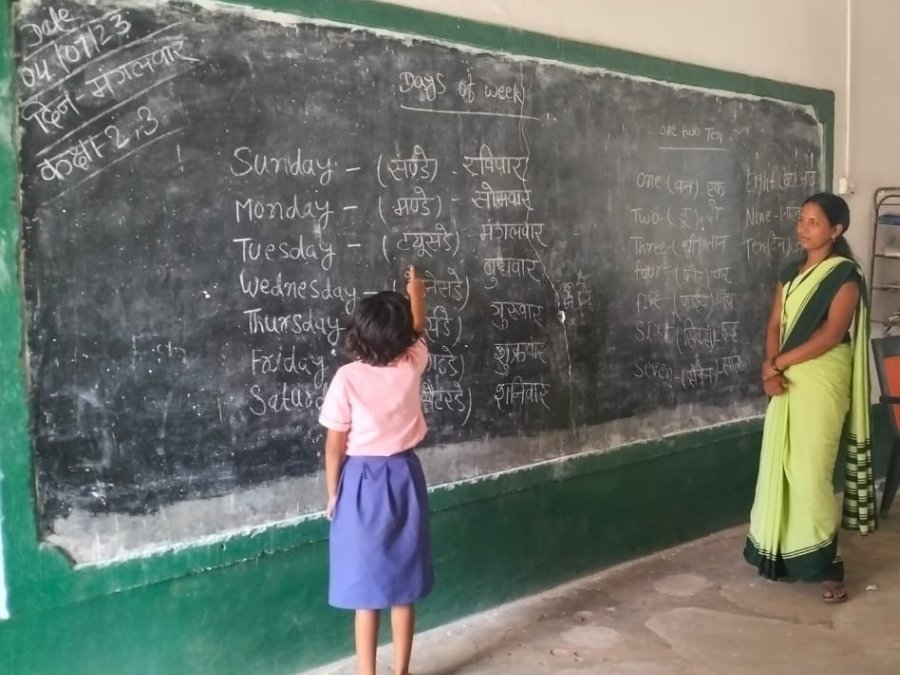 Date
04/07/23
दिन - मंगलवार
कक्षा - 2, 3
Days of week
Sunday - (सण्डे) - रविवार
Monday - (मण्डे) - सोमवार
Tuesday - (टयूसडे) - मंगलवार
Wednesday - नेसडे) बुधवार
Thursday गुरुवार
Friday शुक्रवार
Satur शनिवार
one two Ten
One - (वन) एक
Two - (टू) दो
Three - (थ्री) तीन
four - चार
Five - पाँच
Six
Seven - (सेवन) - सात
Eight
Nine -
Ten (टेन)